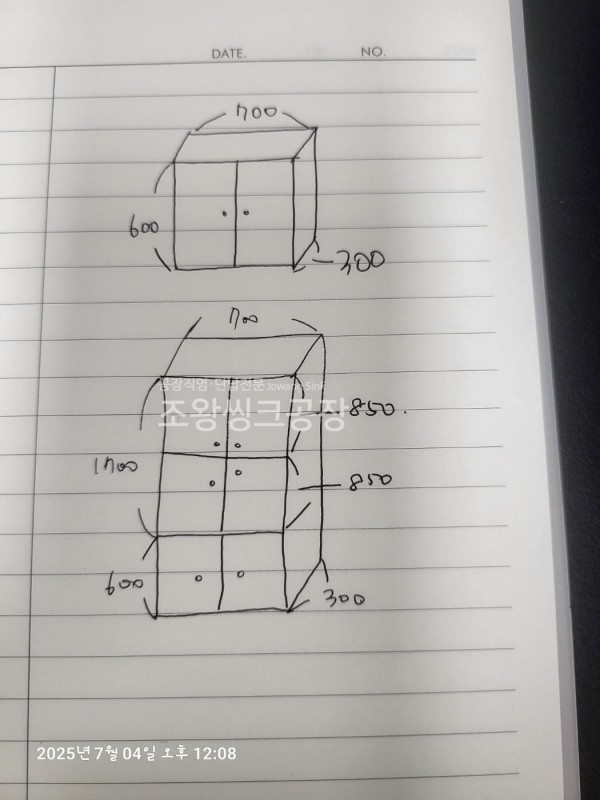 DATE.
NO.
700
600
300
700
공장직영·단납전문 Jowang Sink
조왕씽크공장
850.
1700
850
600
300
2025년 7월 04일 오후 12:08